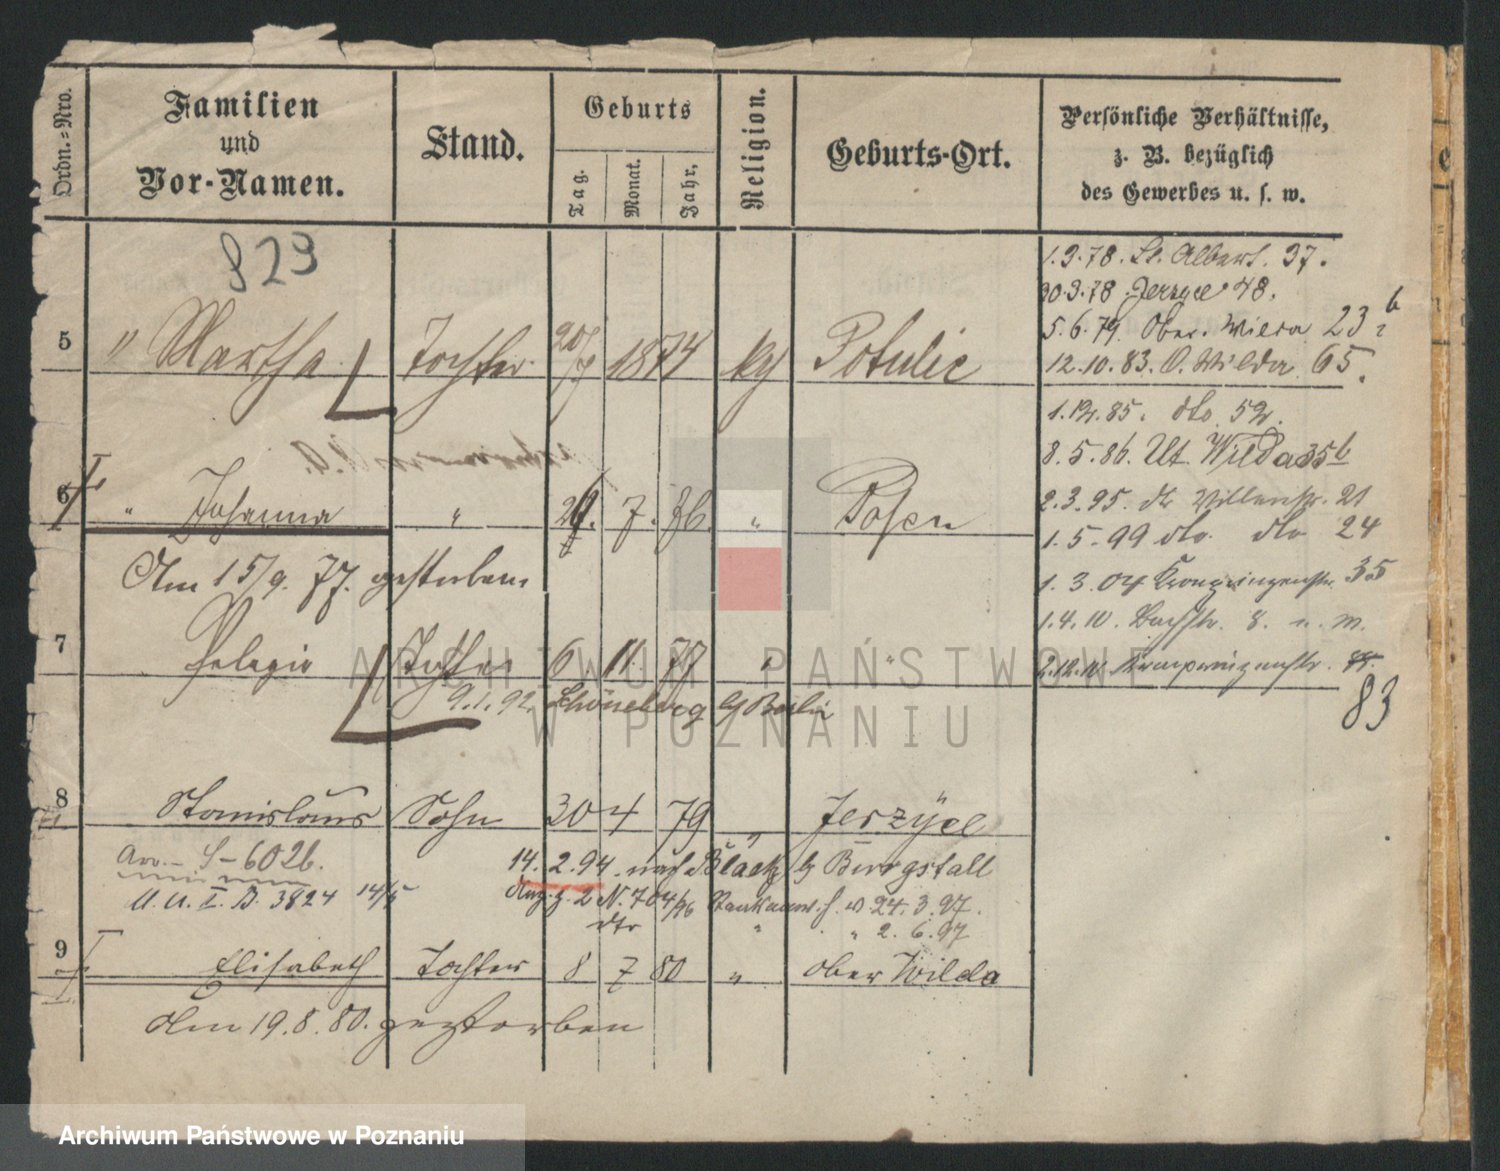 Ordn.=Nro.
Familien
und
Vor-Namen.
Stand.
Geburts
Tag.
Monat.
Jahr.
Religion.
Geburts-Ort.
Persönliche Verhältnisse,
z. B. bezüglich
des Gewerbes u. s. w.
829
1.3.78. St. Albert. 37.
30.3.78. Jerzyce 48.
5.6.79. Ober. Wilda 23 b
12.10.83. O. Wilda 65.
5 " Martha Tochter 20/7 1874 Potulic
1.12.85. dto. 52.
8.5.86. Ut. Wilda 35b
6 " Johanna " 7. 76. " Posen
2.3.95. Villenstr. 21
1.5.99 dto. dto 24
Am 15/9. 77. gestorben.
1.3.04 Kronprinzenstr. 35
1.4.10. Bachstr. 8.
7 Pelagia Tochter 6 11. 77 " "
2.12.10. Kronprinzenstr.
83
9.1.92. Schöneberg b/ Berlin
8 Stanislaus Sohn 30 4 79 " Jerzyce
S-6026. 14.2.94. nach b/ Burgstall
U. U. I. B. 3824 14/5 N. 704/96 24.3.97.
dto " " 2.6.97
9 Elisabeth Tochter 8 7 80 " Ober Wilda
Am 19.8.80. gestorben
ARCHIWUM PAŃSTWOWE
W POZNANIU
Archiwum Państwowe w Poznaniu